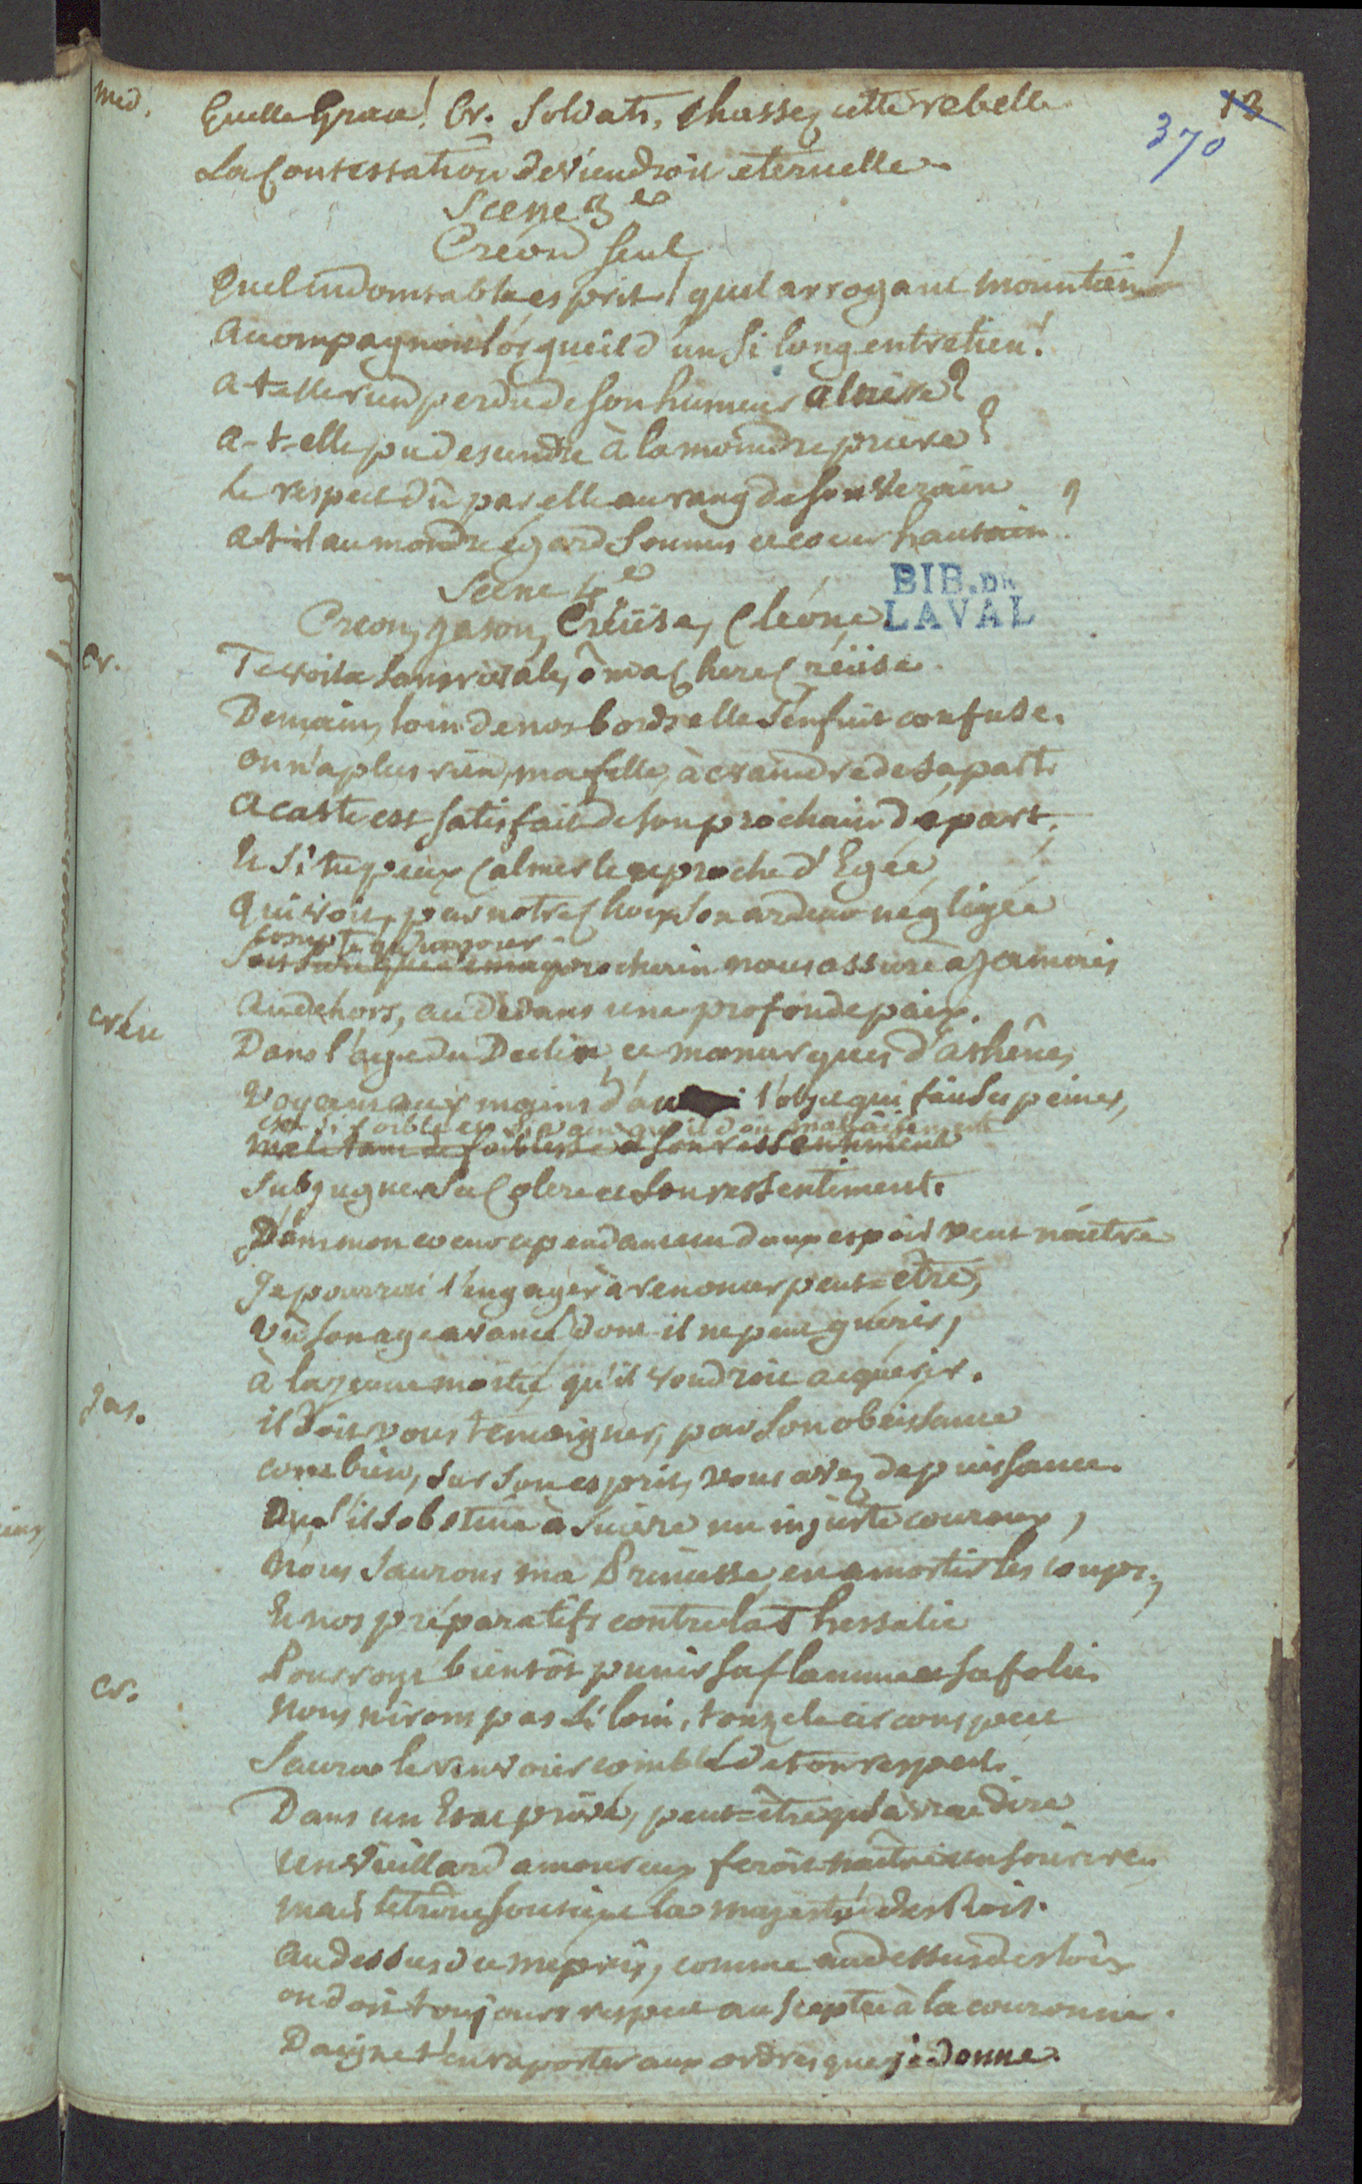 12
370
Med. Quelle Grace! Cr. Soldats, chassez cette rebelle
La Contestation deviendroit eternelle
Scene 3e
Creon seul
Quel indomtable esprit! quel arrogant maintien!
Acompagnoit l'orgueil d'un si long entretien!
A-t-elle rien perdu de son humeur altiere?
A-t-elle pu descendre à la moindre priere?
Le respect dû par elle au rang de souverain
A-t-il au moindre égard soumis ce coeur hautain?
Scene 4e
BIB. DE
LAVAL
Creon, Jason, Creüse, Cléone
Cr. Te voila sans rivale, ô ma chere Creüse
Demain, loin de nos bords elle s'enfuit confuse.
On n'a plus rien, ma fille, à craindre de sa part
Acaste est satisfait de son prochain départ.
Et si tu peux calmer le reproche d'Egée
Qui voit, par notre choix son ardeur négligée
compte qu'un jour
prochain nous assure a jamais
Au dehors, au dedans une profonde paix.
créu Dans l'age du Declin, ce monarque d'athênes,
Voyant aux mains d'autrui l'objet qui fait ses peines,
malaisement
mele tant de foiblesse a son ressentiment
Subjuguer sa Colere et son ressentiment.
Dans mon coeur cependant un doux espoir veut naître
Je pourrai l'engager à renoncer peut=être,
Vu son age avancé dont il ne peut guérir,
à la jeune moitié qu'il voudroit acquérir.
Jas. il doit vous témoigner, par son obeissance
combien, sur son esprit, vous avez de puissance.
Que s'il s'obstine à suivre un injuste couroux,
Nous saurons ma Princesse, en amortir les coups;
Et nos préparatifs contre la Thessalie
Pourront bientôt punir sa flamme et sa folie.
Cr. Nous n'irons pas si loin, ton zele circonspect
Saura le renvoier comblé de ton respect.
Dans un Etat privé, peut=être qu'à vrai dire
Un vieillard amoureux feroit naître un sourire.
mais le trône soutient la majesté des Rois.
Au dessus du mepris, comme au dessus des loix
on doit toujours respect au sceptre à la couronne.
Daigne t'en raporter aux ordres que je donne.